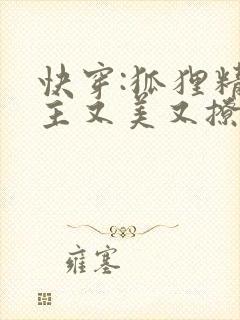 快穿:狐狸精
主又美又撩
雍塞